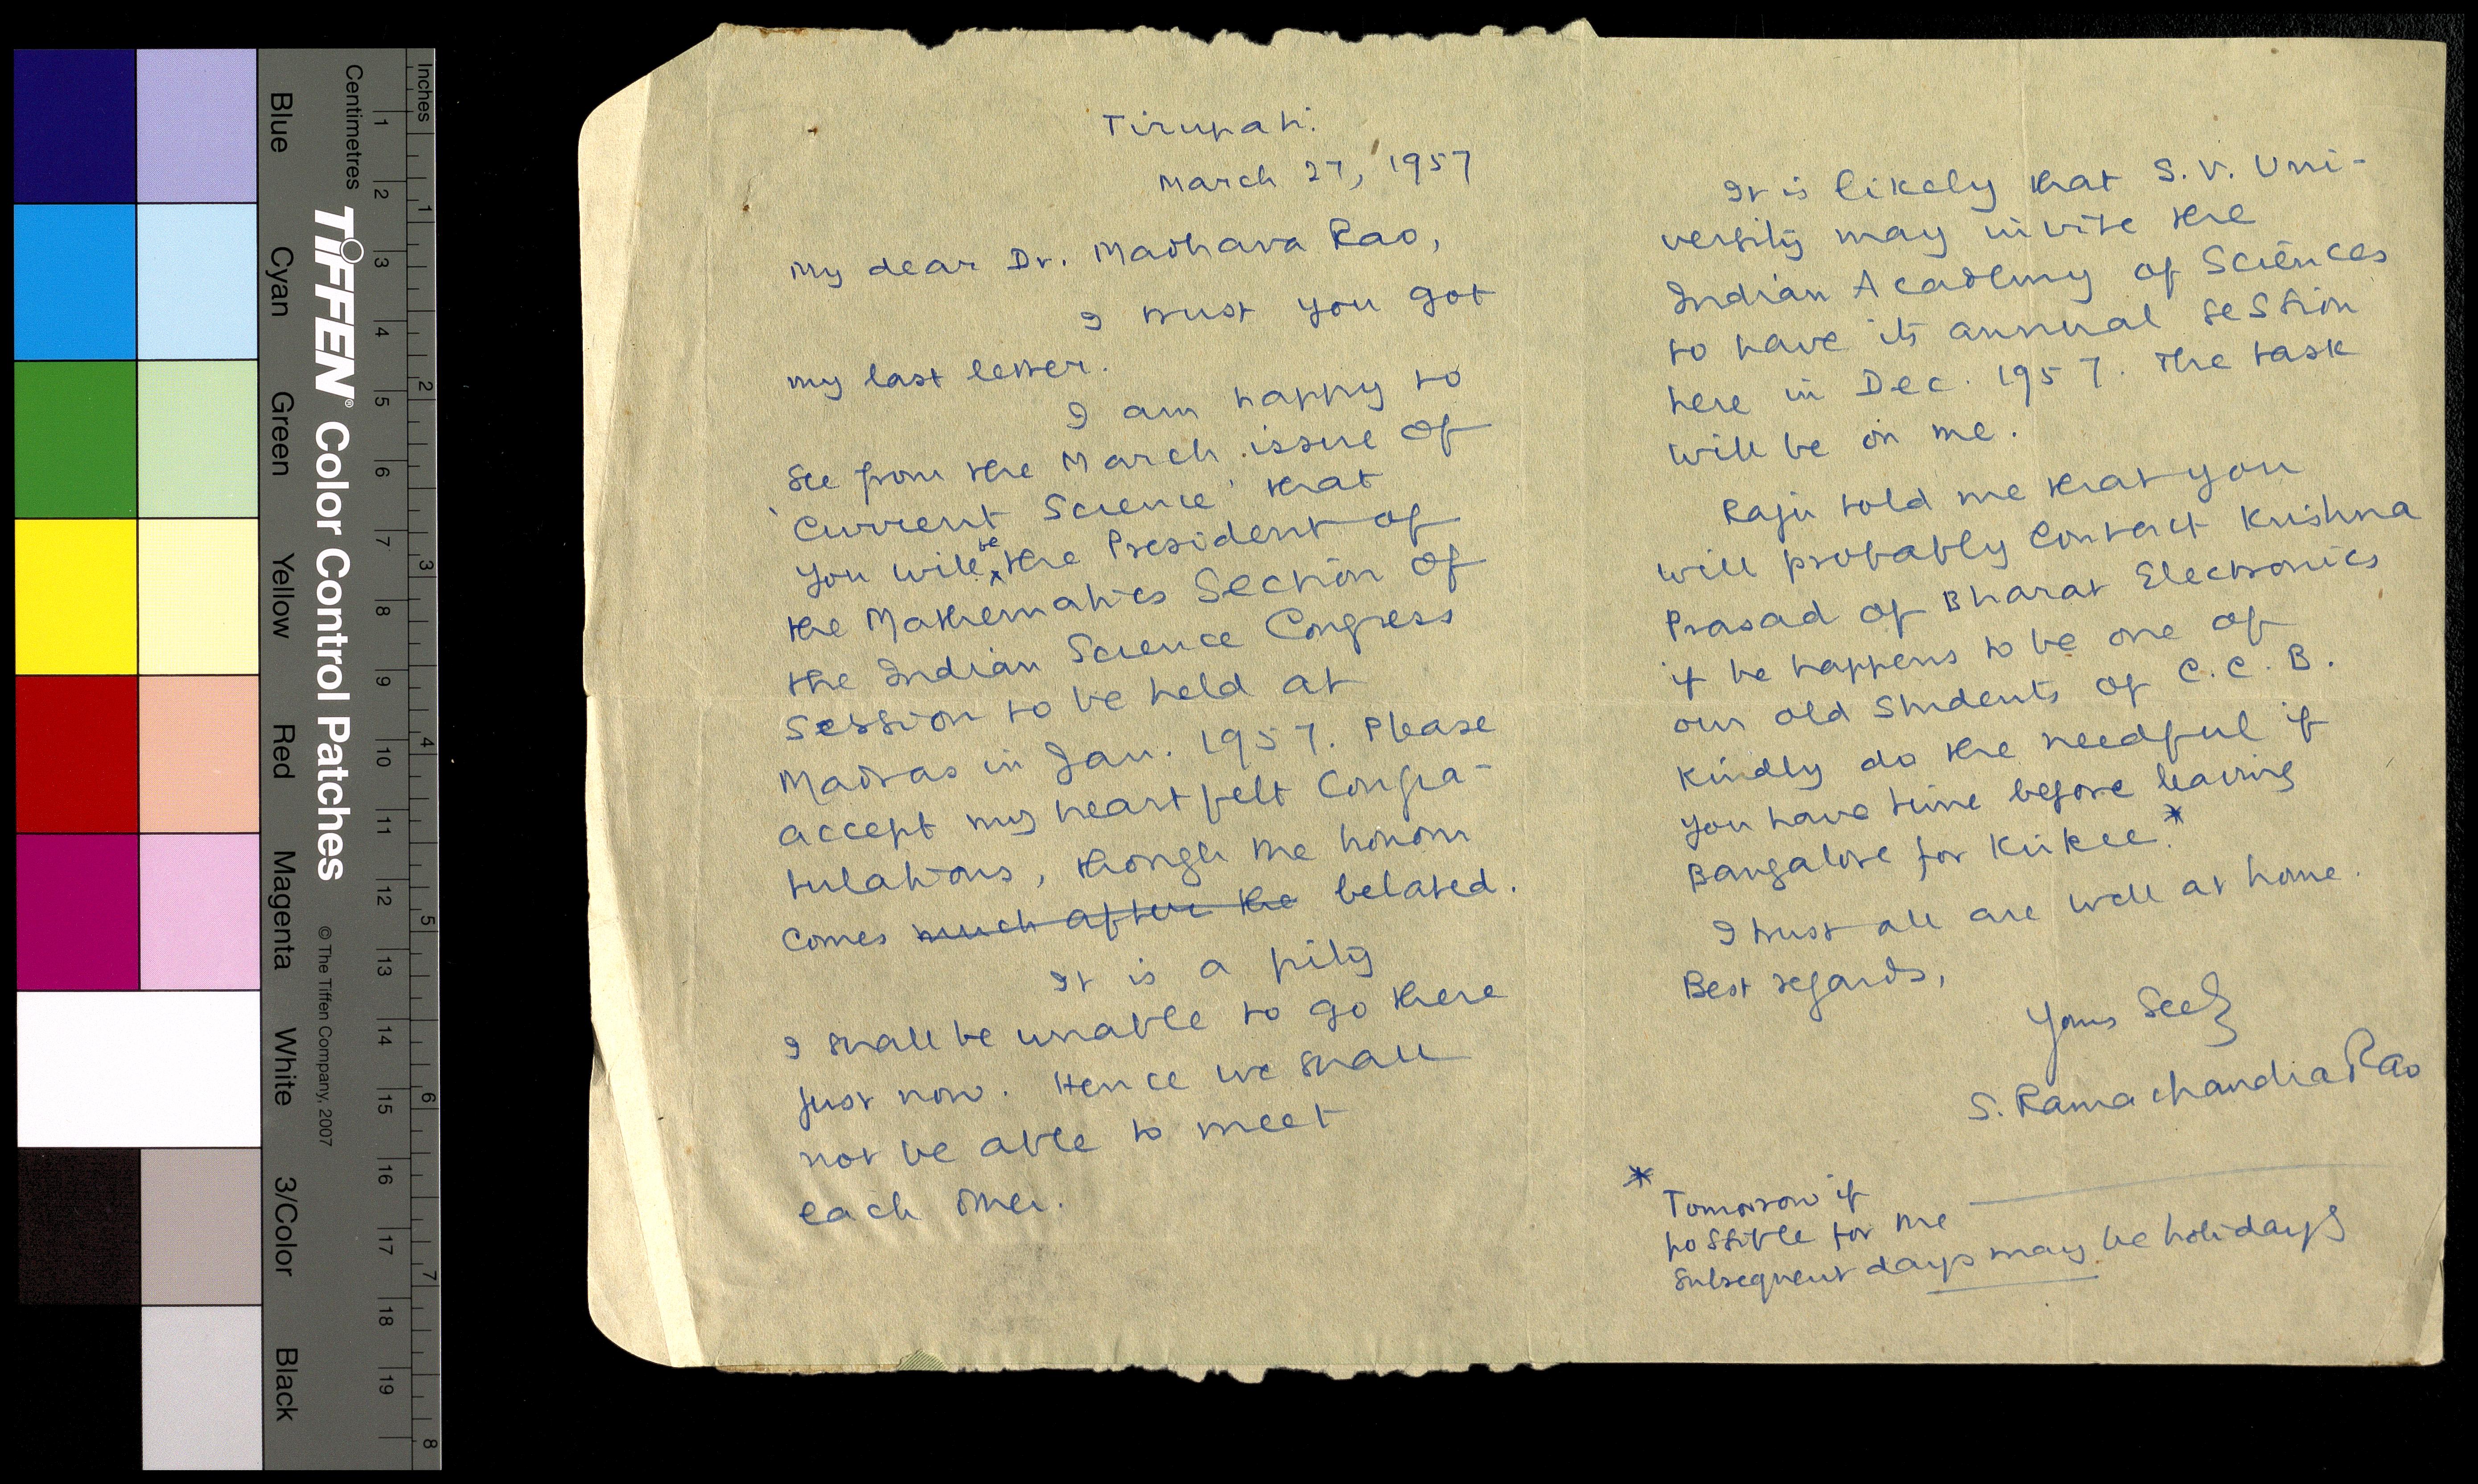 Blue
Cyan
Green
Yellow
Red
Magenta
White
3/Color
Black
TIFFEN® Color Control Patches
© The Tiffen Company, 2007
Centimetres
1 2 3 4 5 6 7 8 9 10 11 12 13 14 15 16 17 18 19
Inches
1 2 3 4 5 6 7 8
Tirupati.
March 27, 1957
My dear Dr. Madhava Rao,
I trust you got
my last letter.
I am happy to
see from the March issue of
'Current Science' that
you will be the President of
the Mathematics Section of
the Indian Science Congress
Session to be held at
Madras in Jan. 1957. Please
accept my heartfelt Congra-
tulations, though the honour
comes much after the belated.
It is a pity
I shall be unable to go there
just now. Hence we shall
not be able to meet
each other.
It is likely that S.V. Uni-
versity may invite the
Indian Academy of Sciences
to have its annual session
here in Dec. 1957. The task
will be on me.
Raju told me that you
will probably contact Krishna
Prasad of Bharat Electronics
if he happens to be one of
our old students of C.C.B.
Kindly do the needful if
you have time before leaving
Bangalore for Kirkee.*
I trust all are well at home.
Best regards,
Yours
S. Ramachandra Rao
* Tomorrow if
possible for me
Subsequent days may be holidays